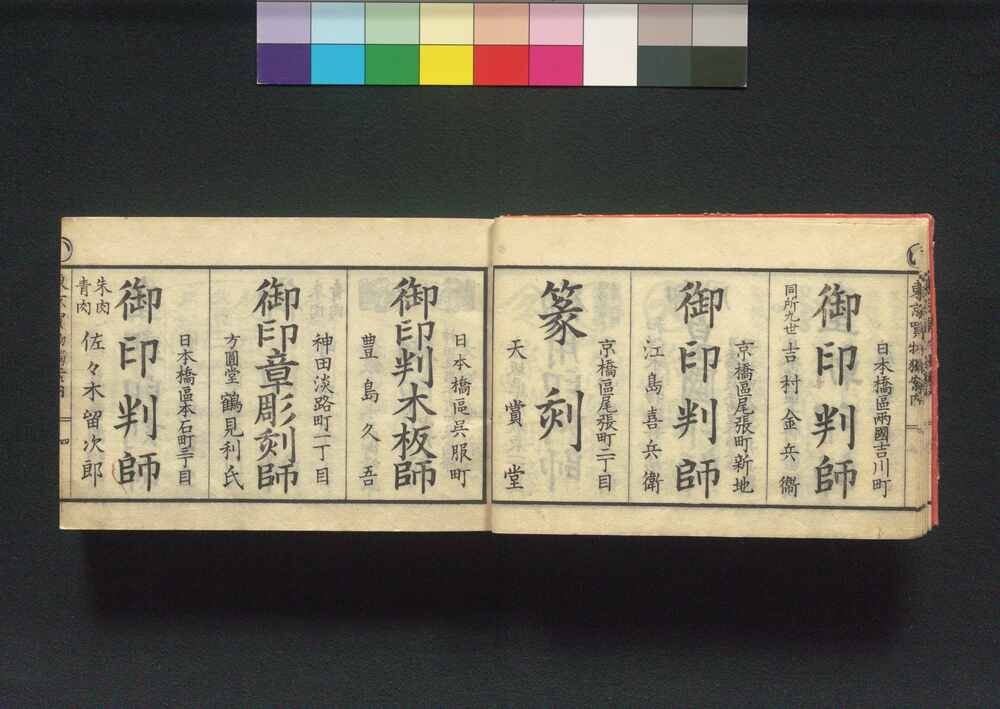 い
東京買物獨案内
日本橋區兩國吉川町
御印判師
同所九世
吉村金兵衞
京橋區尾張町新地
御印判師
江島喜兵衛
京橋區尾張町二丁目
篆刻
天賞堂
日本橋區呉服町
御印判木板師
豊島久吾
神田淡路町一丁目
御印章彫刻師
方圓堂 鶴見利氏
日本橋區本石町三丁目
御印判師
朱肉
青肉
佐々木留次郎
い
四